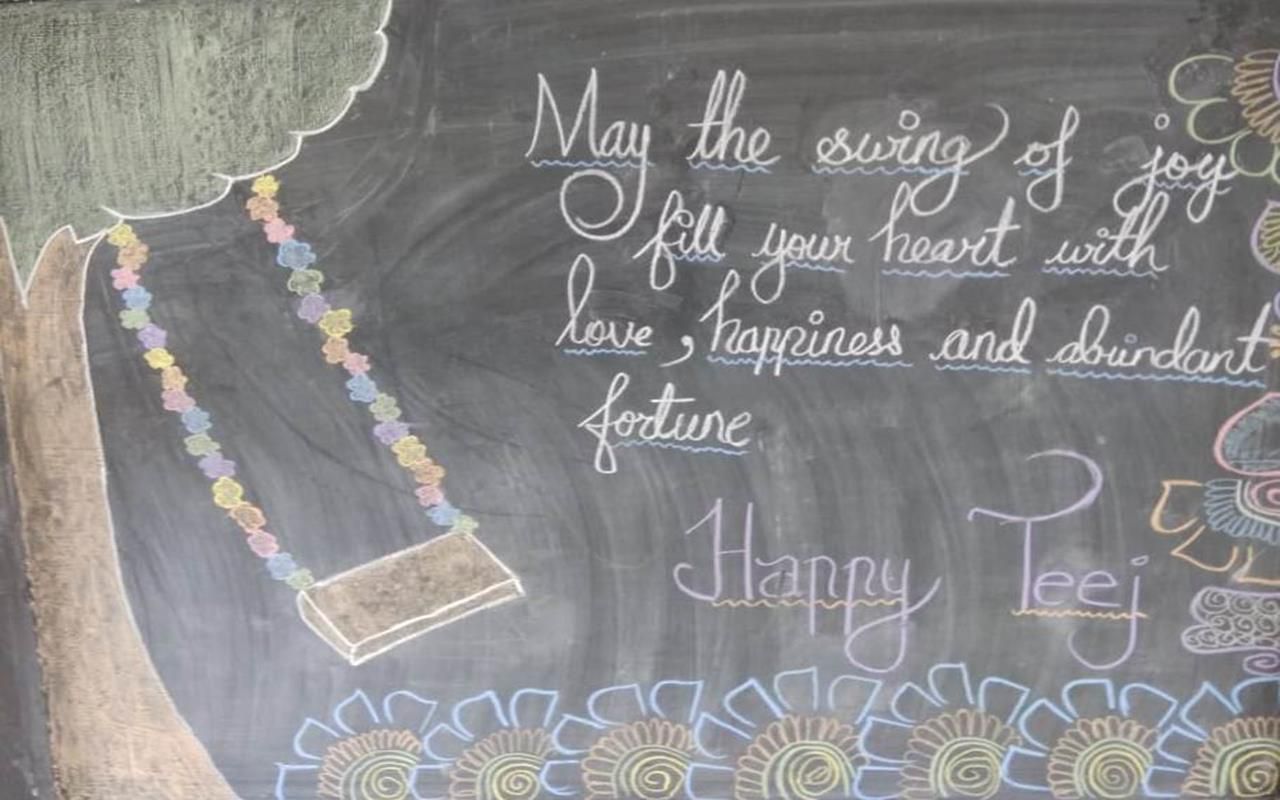 May the swing of joy
fill your heart with
love, happiness and abundant
fortune
Happy Teej